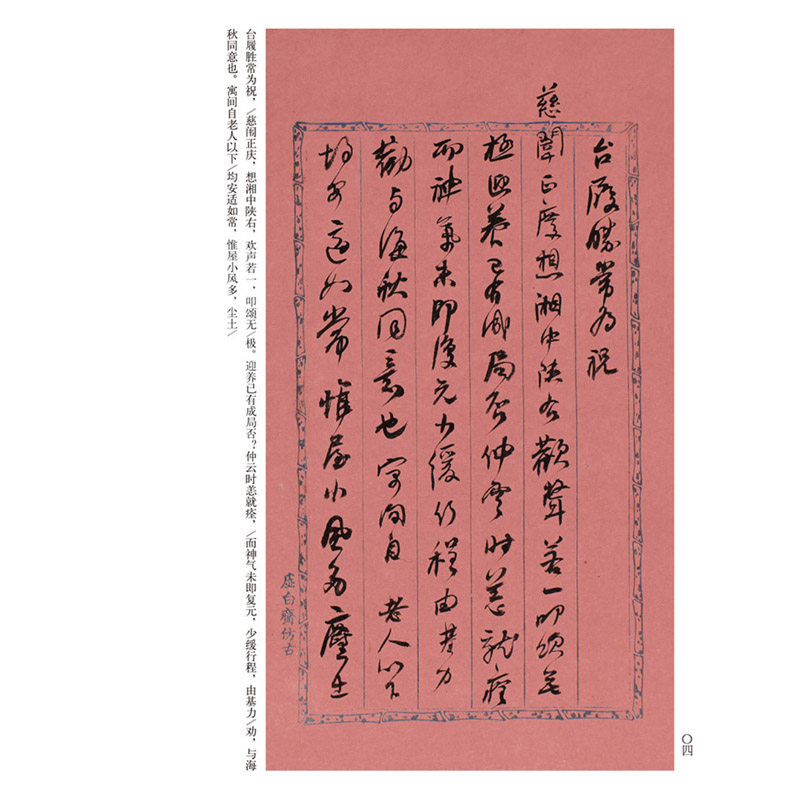 〇四
台履勝常为祝
慈闈正慶想湘中陕右歡聲若一叩頌无
極迎養已有成局否仲雲时恙就痊
而神氣未即復元少缓行程由基力
勸与海秋同意也寓间自老人以下
均安適如常惟屋小風多塵土
虚白齋仿古
台履胜常为祝，/慈闱正庆，想湘中陕右，欢声若一，叩颂无/极。迎养已有成局否？仲云时恙就痊，/而神气未即复元，少缓行程，由基力/劝，与海
秋同意也。寓间自老人以下/均安适如常，惟屋小风多，尘土/